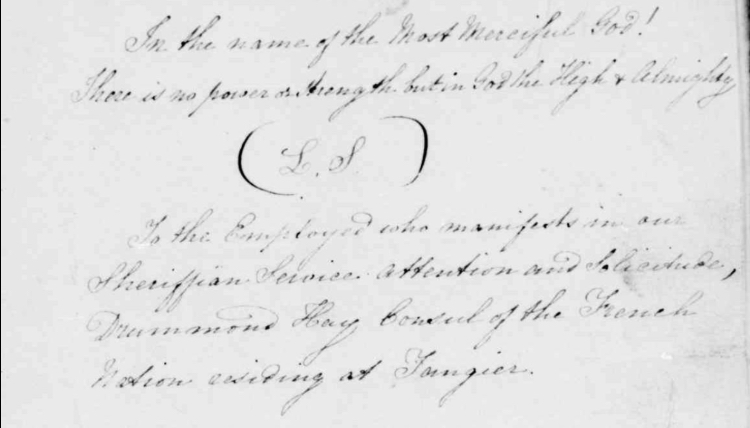 In the name of the Most Merciful God!
There is no power or strength but in God the High & Almighty
(L. S.)
To the Employed who manifests in our
Sheriffian Service attention and solicitude,
Drummond Hay Consul of the French
Nation residing at Tangier.